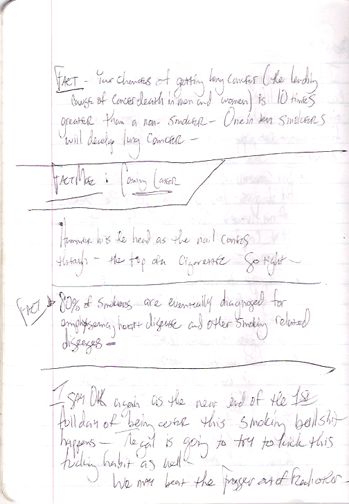 FACT - Your chances of getting lung cancer (the leading
cause of cancer death in men and women) is 10 times
greater than a non smoker - One in ten smokers
will develop lung cancer -
FACT : Coming Later
his head as the nail comes
through - the tip of a cigarette So right -
FACT 80% of smokers are eventually diagnosed for
emphysema, heart disease and other smoking related
diseases -
I say OK again as the near end of the 1st
full day of being over this smoking bullshit
happens - The girl is going to try to kick this
fucking habit as well -
We may beat the out of each other -